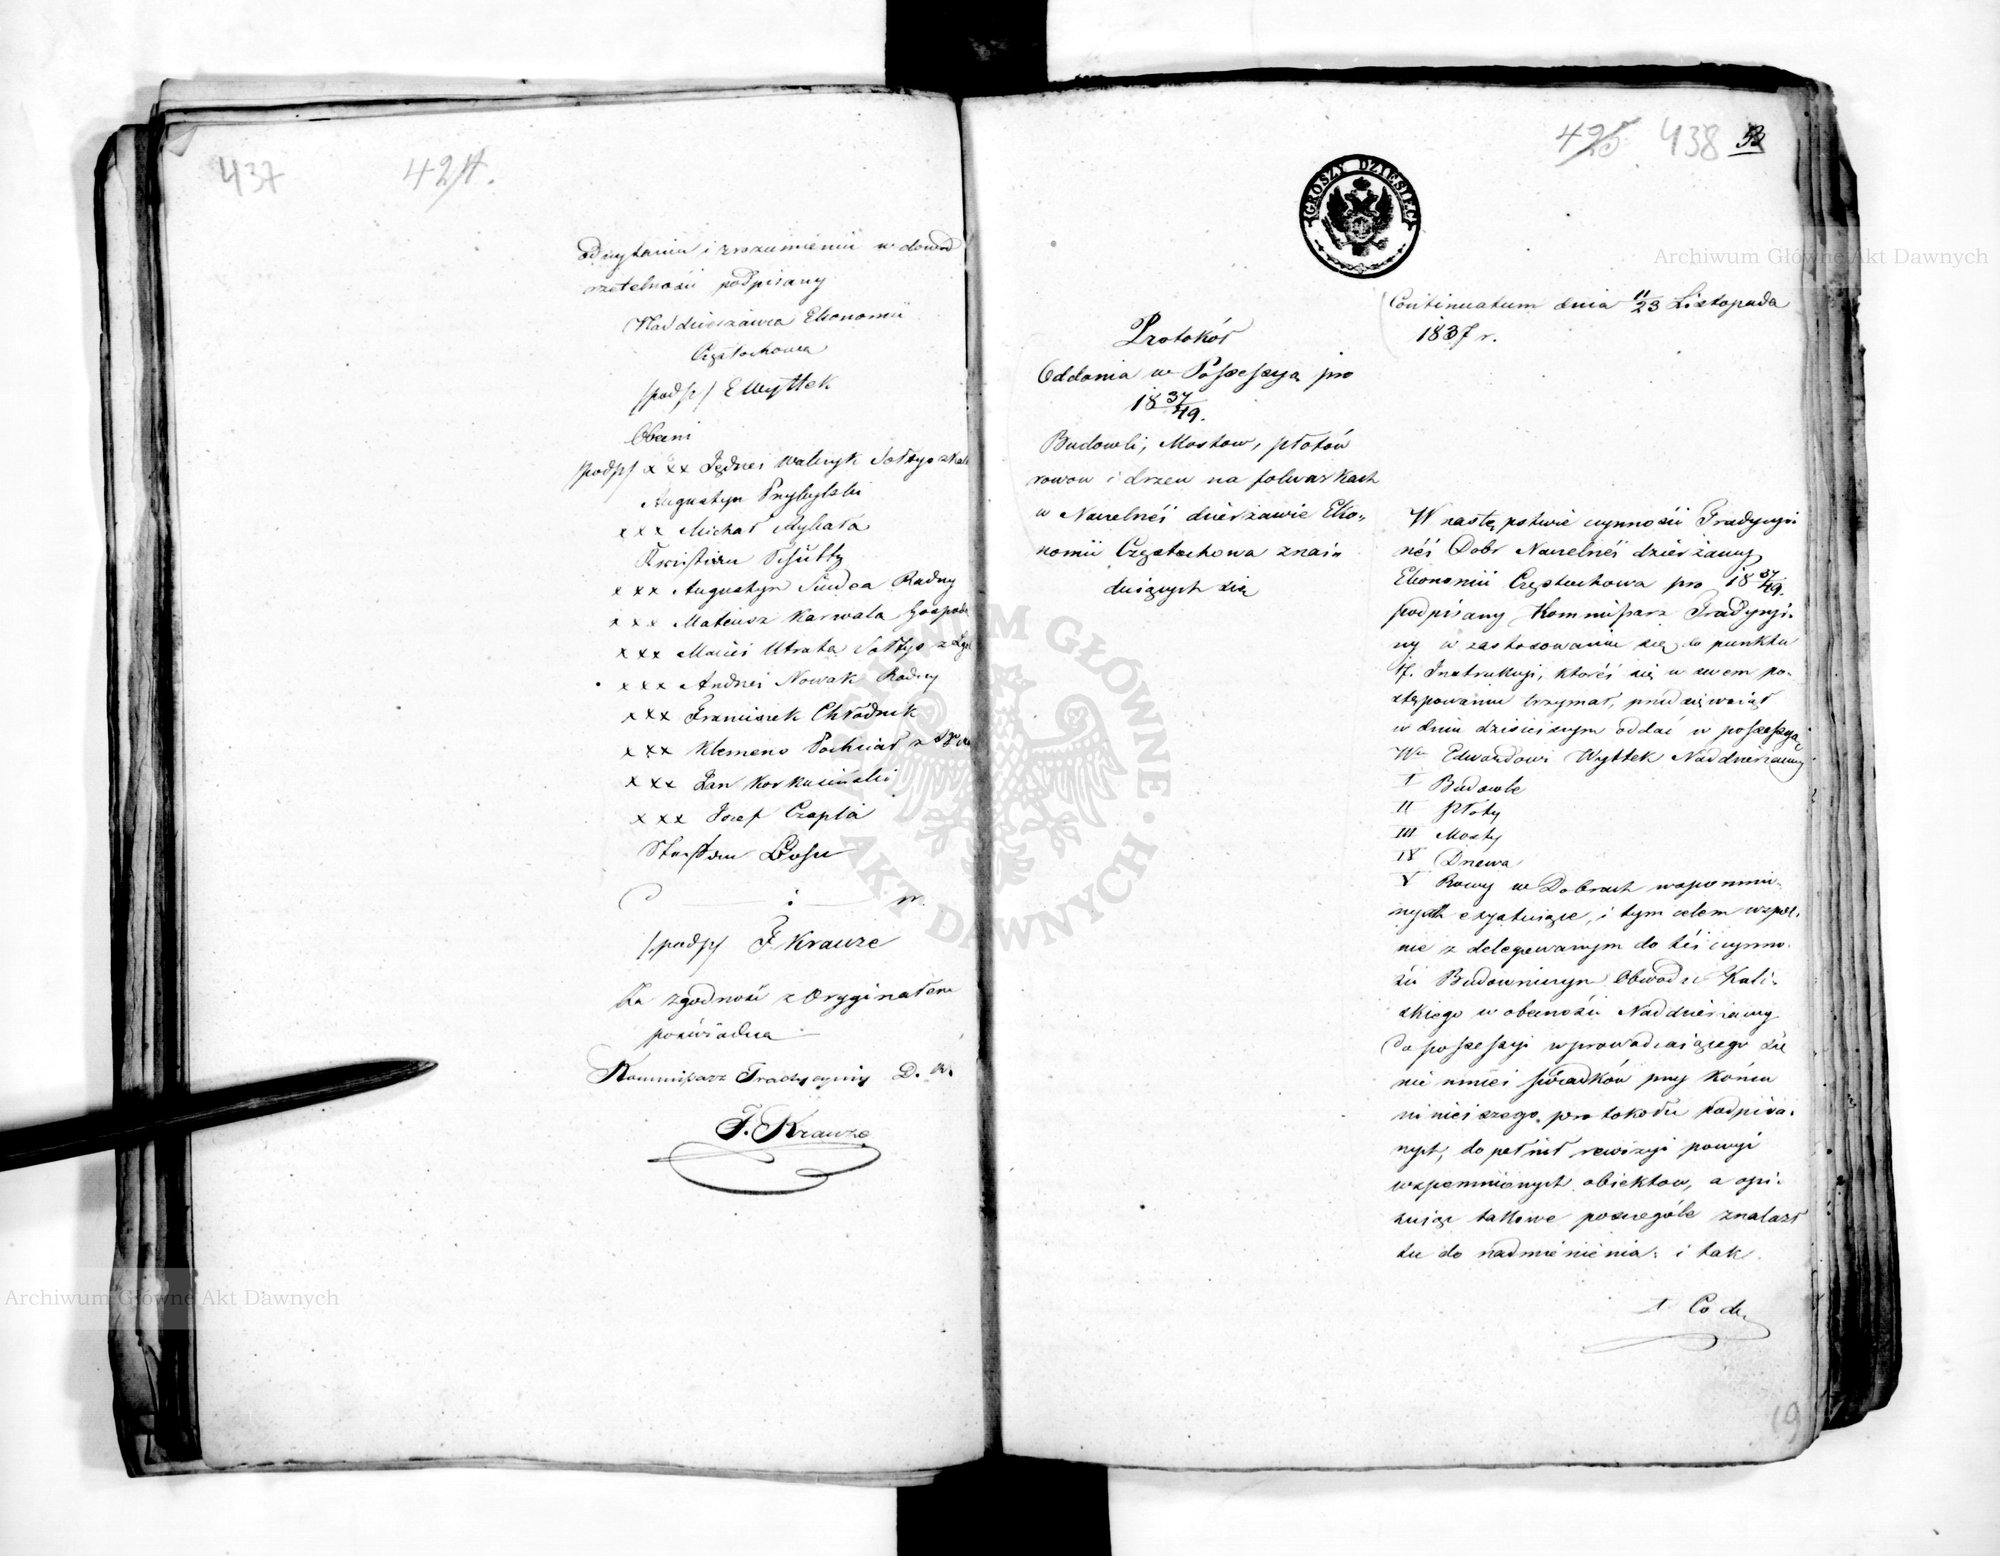 437
424.
odczytaniu i zrozumieniu w dowód
rzetelności podpisany
Naddzierżawca Ekonomii
Częstochowa
/podp/ E Wyttek
Obecni
/podp/ x x x Jędrzei Walczyk Sołtys z
Augustyn Przybylski
x x x Michał
Krzistian Schultz
x x x Augustyn Radny
x x x Mateusz Karwala Gospod
x x x Maciei Utrata Sołtys z
x x x Andrzei Nowak Radny
x x x Franciszek Chłódnik
x x x Klemens z
x x x Jan
x x x Jozef Czapla
/podp/ F Krauze
Za zgodność z Oryginałem
poświadcza
Kommissarz Tradycyiny D. R.
F. Krauze
425 438 53
GROSZY DZIESIĘĆ
Continuatum dnia 11/23 Listopada
1837 r.
Protokół
Oddania w Possessyą pro
18 37/49.
Budowli, Mostow, płotów
rowow i drzew na folwarkach
w Naczelnéi dzierżawie Eko-
nomii Częstochowa znai-
duiących się
W następstwie czynności Tradycyi
néi Dobr Naczelnéi dzierżawy
Ekonomii Częstochowa pro 18 37/49.
podpisany Kommissarz Tradycyi-
ny w zastosowaniu się do punktu
17. Instrukcyi, któréi się w swem po-
stępowaniu trzymał, przedsięwziął
w dniu dzisieiszym oddać w possessyą
Wu Edwardowi Wyttek Naddzierżawcy
I Budowle
II Płoty
III Mosty
IV Drzewa
V Rowy w Dobrach wspomnio-
nych exystuiące, i tym celem wspól-
nie z delegowanym do téi czynno-
ści Budowniczym Obwodu Kali-
skiego w obecności Naddzierżawcy
do possessyi wprowadzaiącego się
nie mniéi świadków przy końcu
ninieiszego protokołu podpisa-
nych, dopełnił rewizyi powyżéi
wspomnionych obiektow, a opi-
suiąc takowe poszczególe znalazł
tu do nadmienienia: i tak.
1. Co do
19
Archiwum Główne Akt Dawnych
Archiwum Główne Akt Dawnych
ARCHIWUM GŁÓWNE AKT DAWNYCH